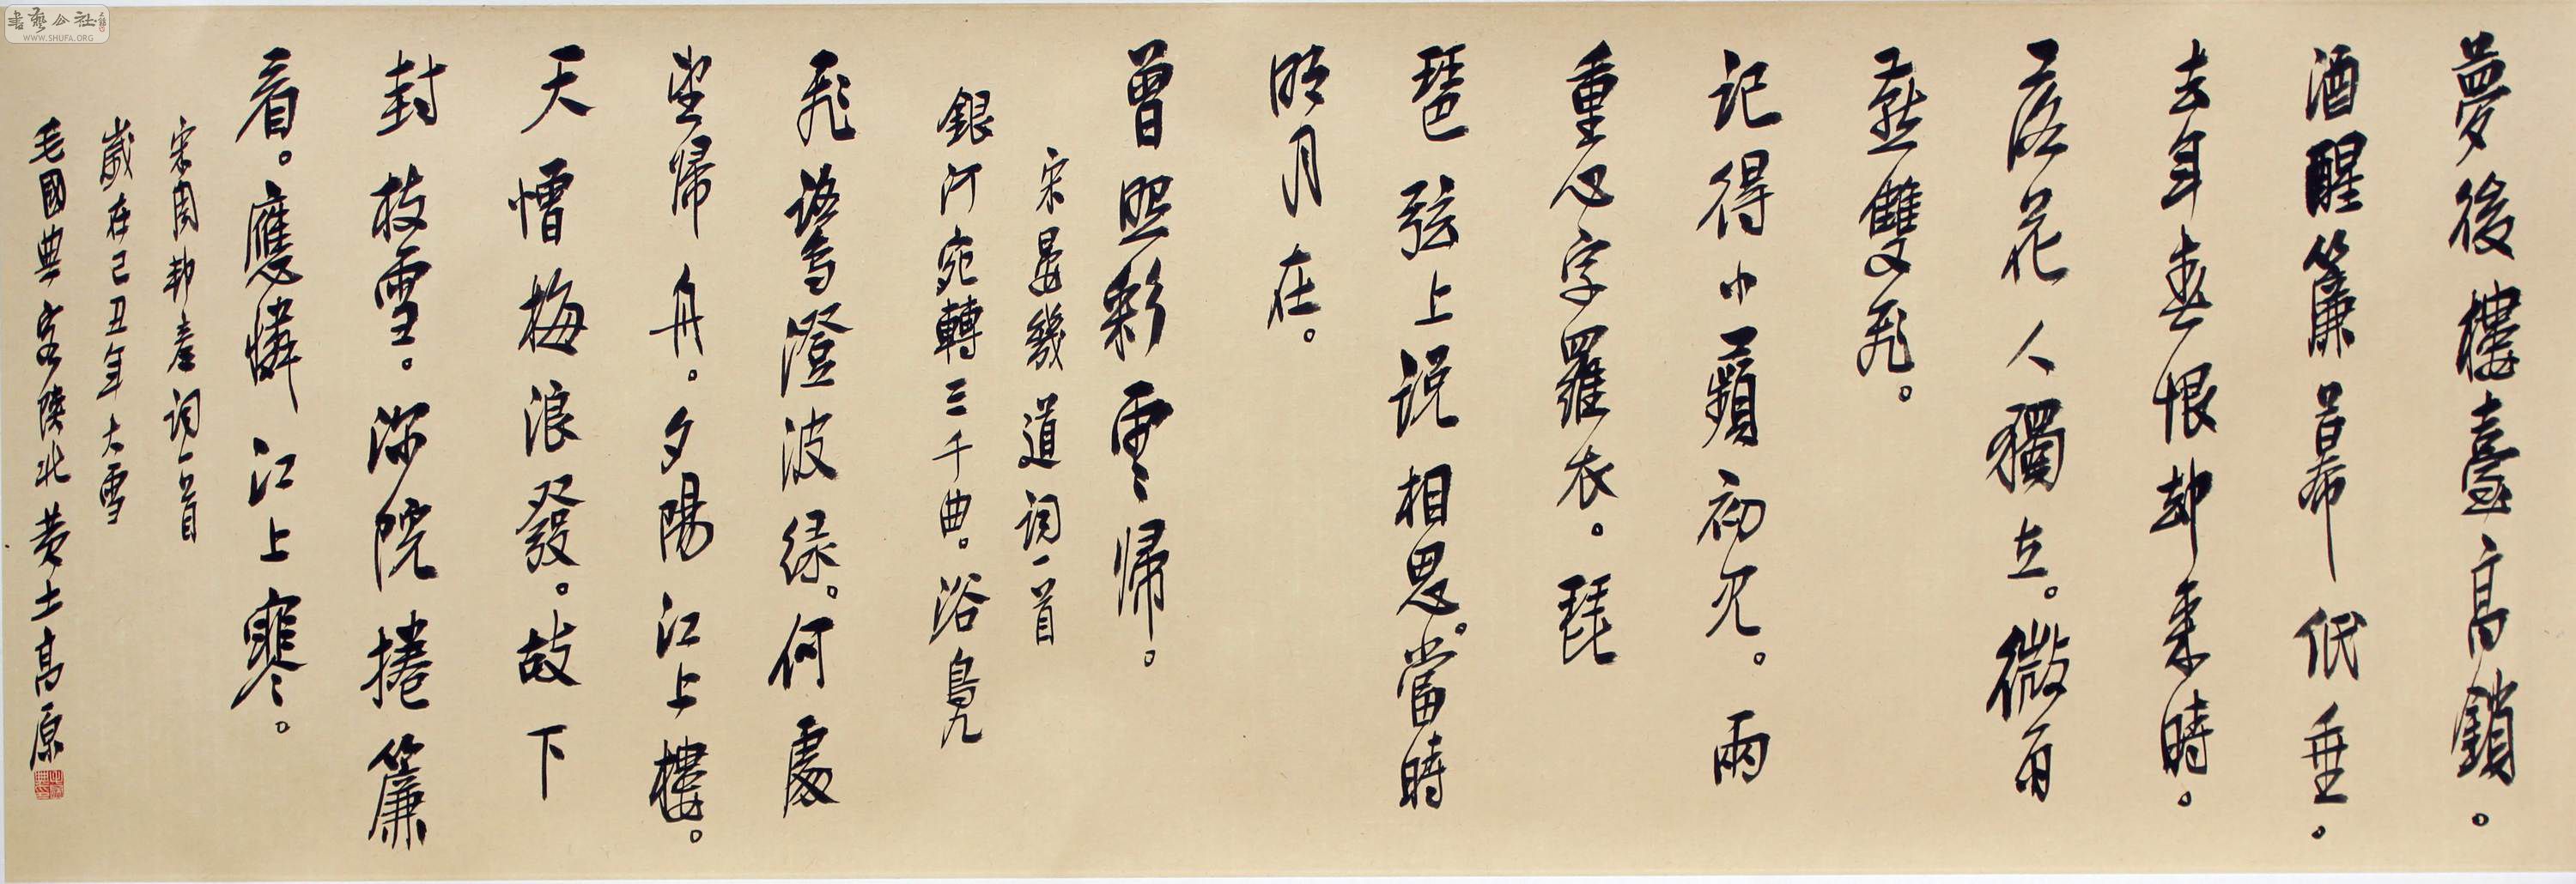 夢後樓臺高鎖。
酒醒簾幕低垂。
去年春恨却来時。
落花人獨立。微雨
燕雙飛。
记得小蘋初见。兩
重心字羅衣。琵
琶弦上说相思。當時
明月在。
曾照彩雲归。
宋晏幾道词一首
銀河宛轉三千曲。浴鳧
飛鹭澄波绿。何處
望归舟。夕陽江上樓。
天憎梅浪發。故下
封枝雪。深院捲簾
看。應憐江上寒。
宋周邦彦词一首
歲在己丑年大雪
毛國典客陝北黄土高原
書藝公社
WWW.SHUFA.ORG